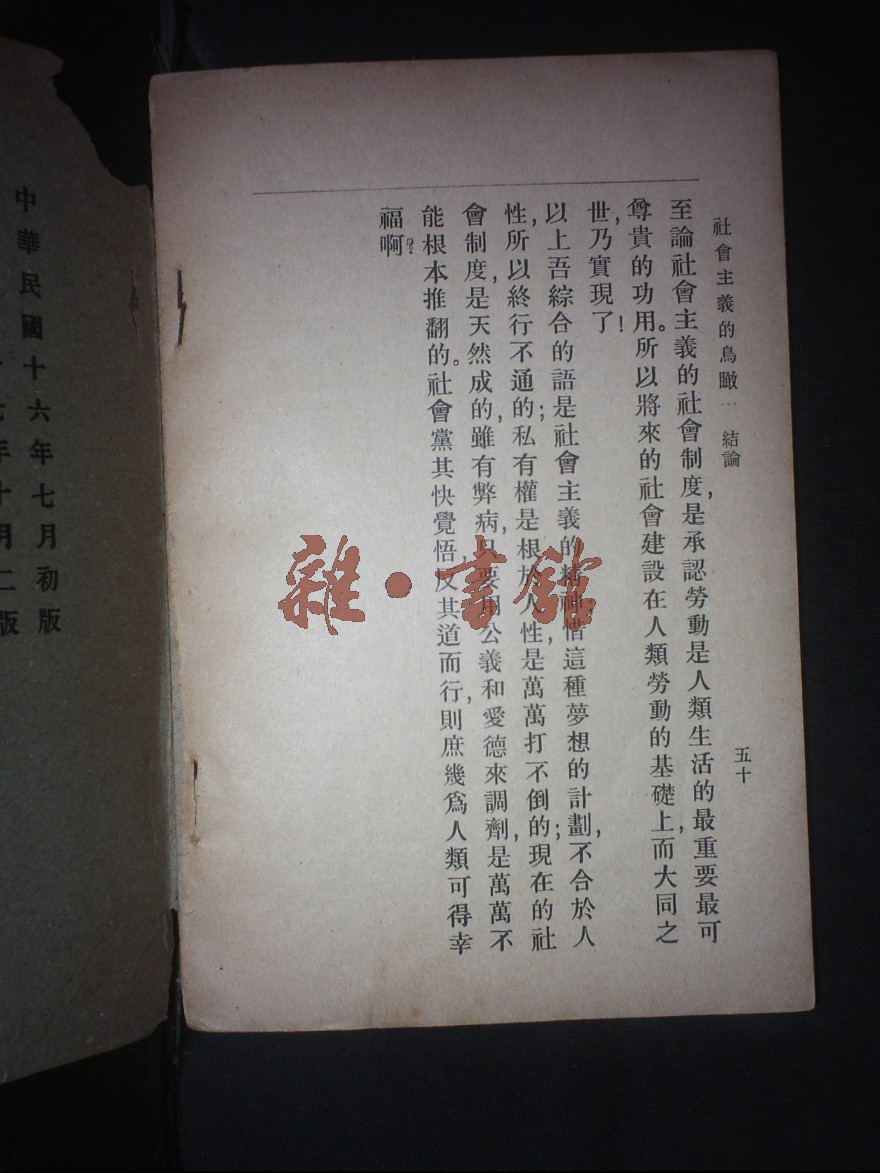 社會主義的鳥瞰 … 結論
五十
至論社會主義的社會制度,是承認勞動是人類生活的最重要最可
尊貴的功用。所以將來的社會建設在人類勞動的基礎上,而大同之
世,乃實現了!
以上吾綜合的語是社會主義的精神,惜這種夢想的計劃,不合於人
性,所以終行不通的;私有權是根於人性,是萬萬打不倒的;現在的社
會制度,是天然成的,雖有弊病,只要用公義和愛德來調劑,是萬萬不
能根本推翻的。社會黨其快覺悟,反其道而行,則庶幾爲人類可得幸
福啊?
中華民國十六年七月初版
七年十月二版
雜·書館